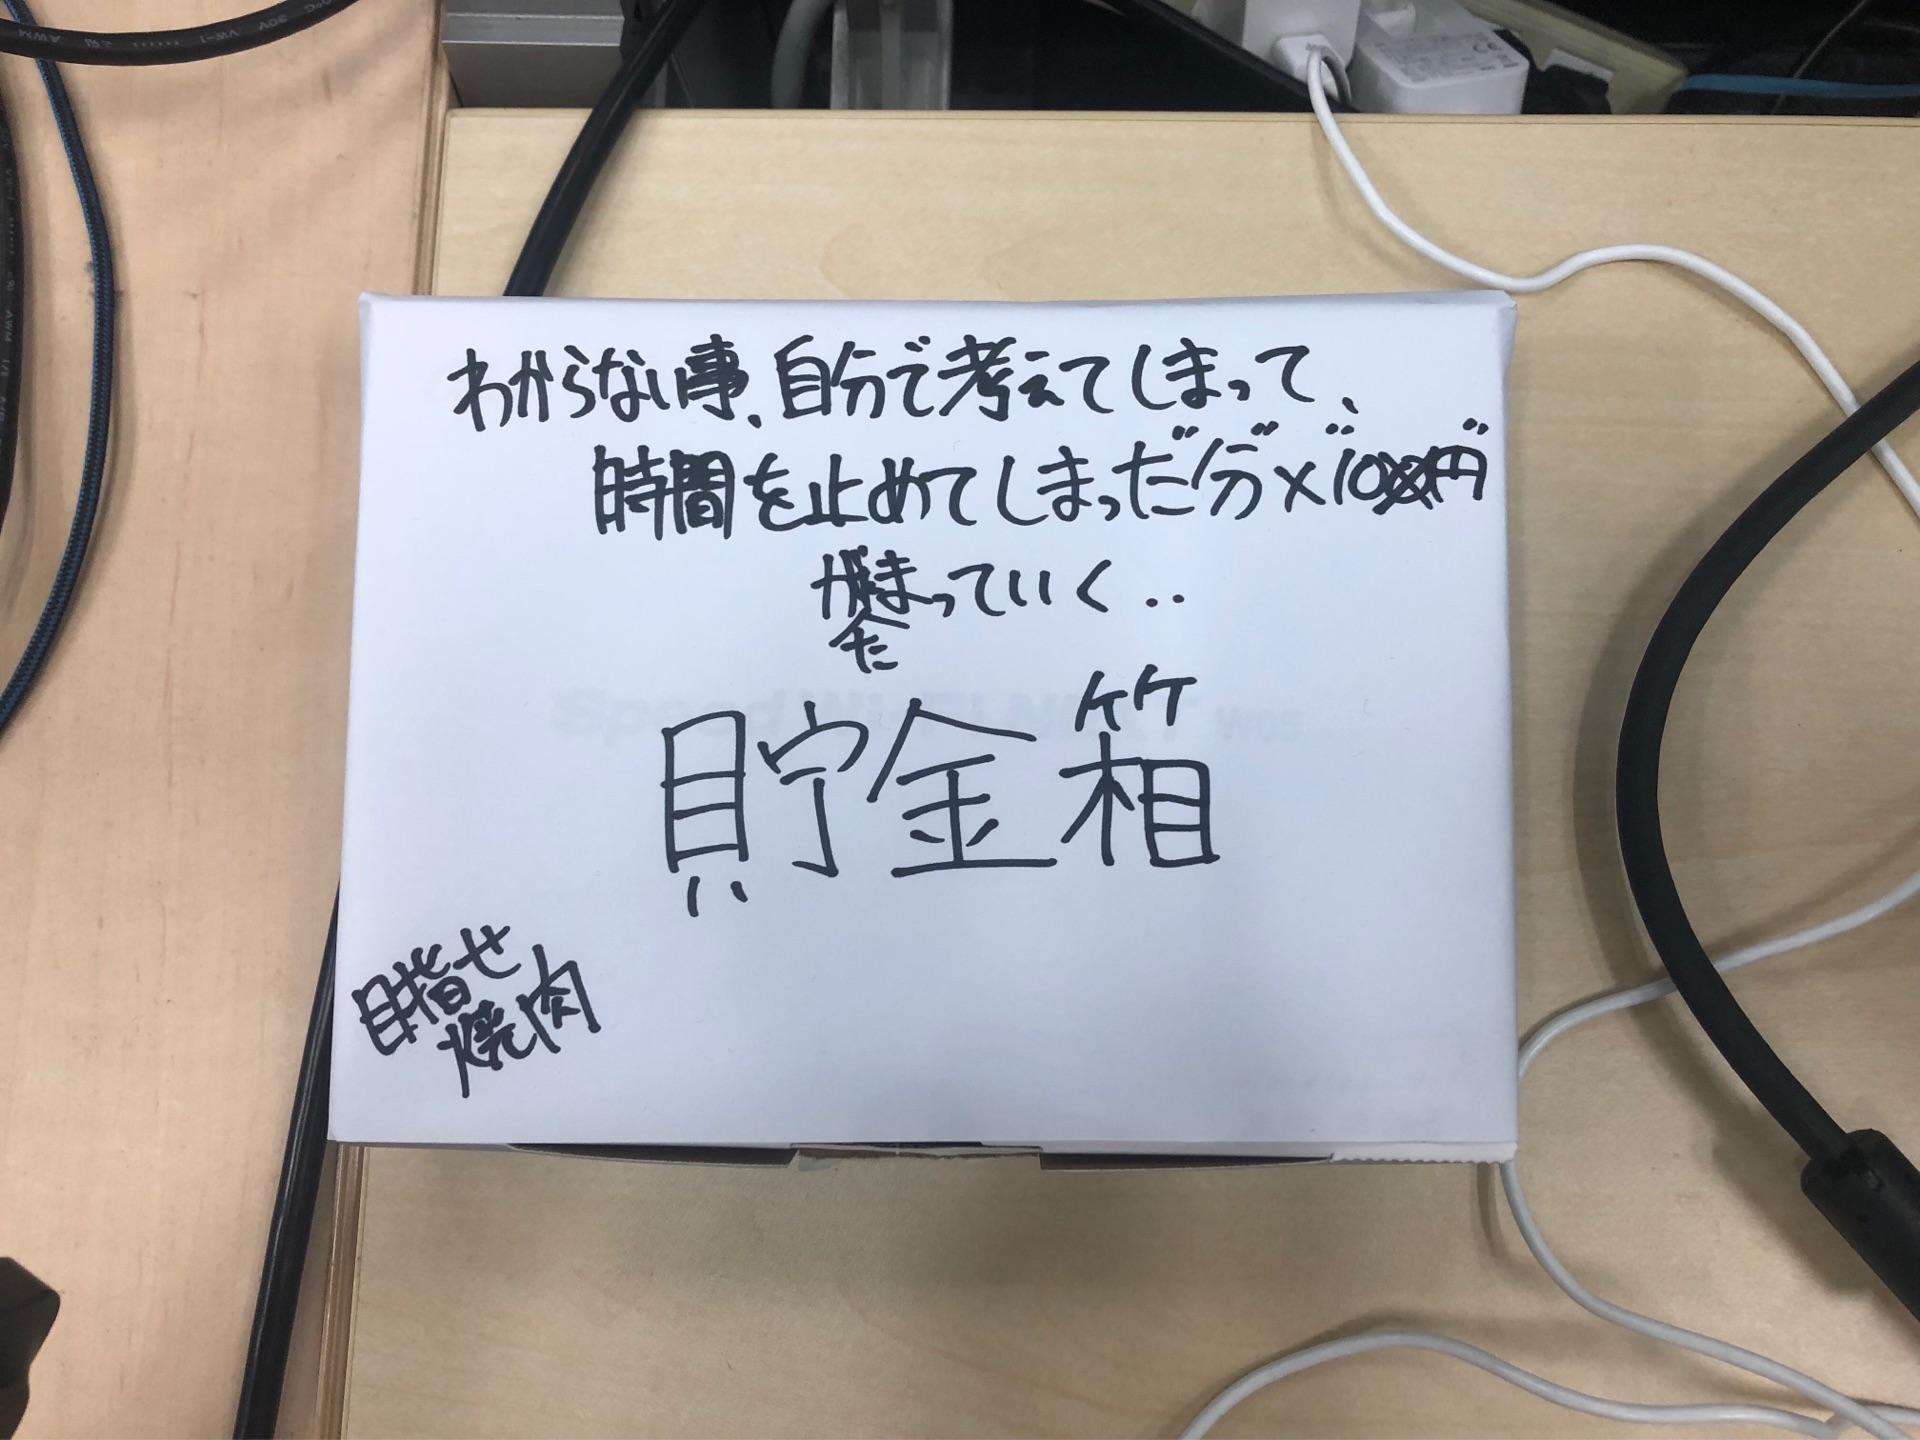 わからない事、自分で考えてしまって、
時間を止めてしまった分×10円
がたまっていく‥
貯金箱
目指せ
焼肉
Speed Wi-Fi NEXT W05
AWM VW-1